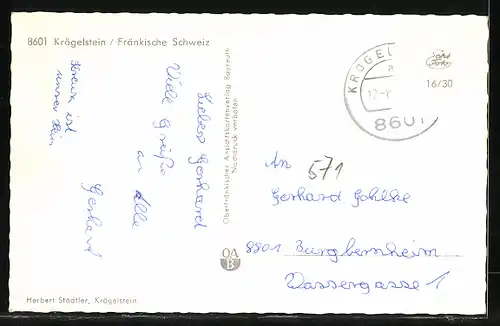 8601 Krögelstein / Fränkische Schweiz
Lieber Gerhard
Viele Grüße
an Alle
Gerhard
Kreuz ist
unser Heim
Oberfränkischer Ansichtskartenverlag Bayreuth
Nachdruck verboten
OA
B
KRÖGEL
8601
16/30
An
571
Gerhard Gohlke
8801 Burgbernheim
Wassergasse 1
Herbert Städtler, Krögelstein